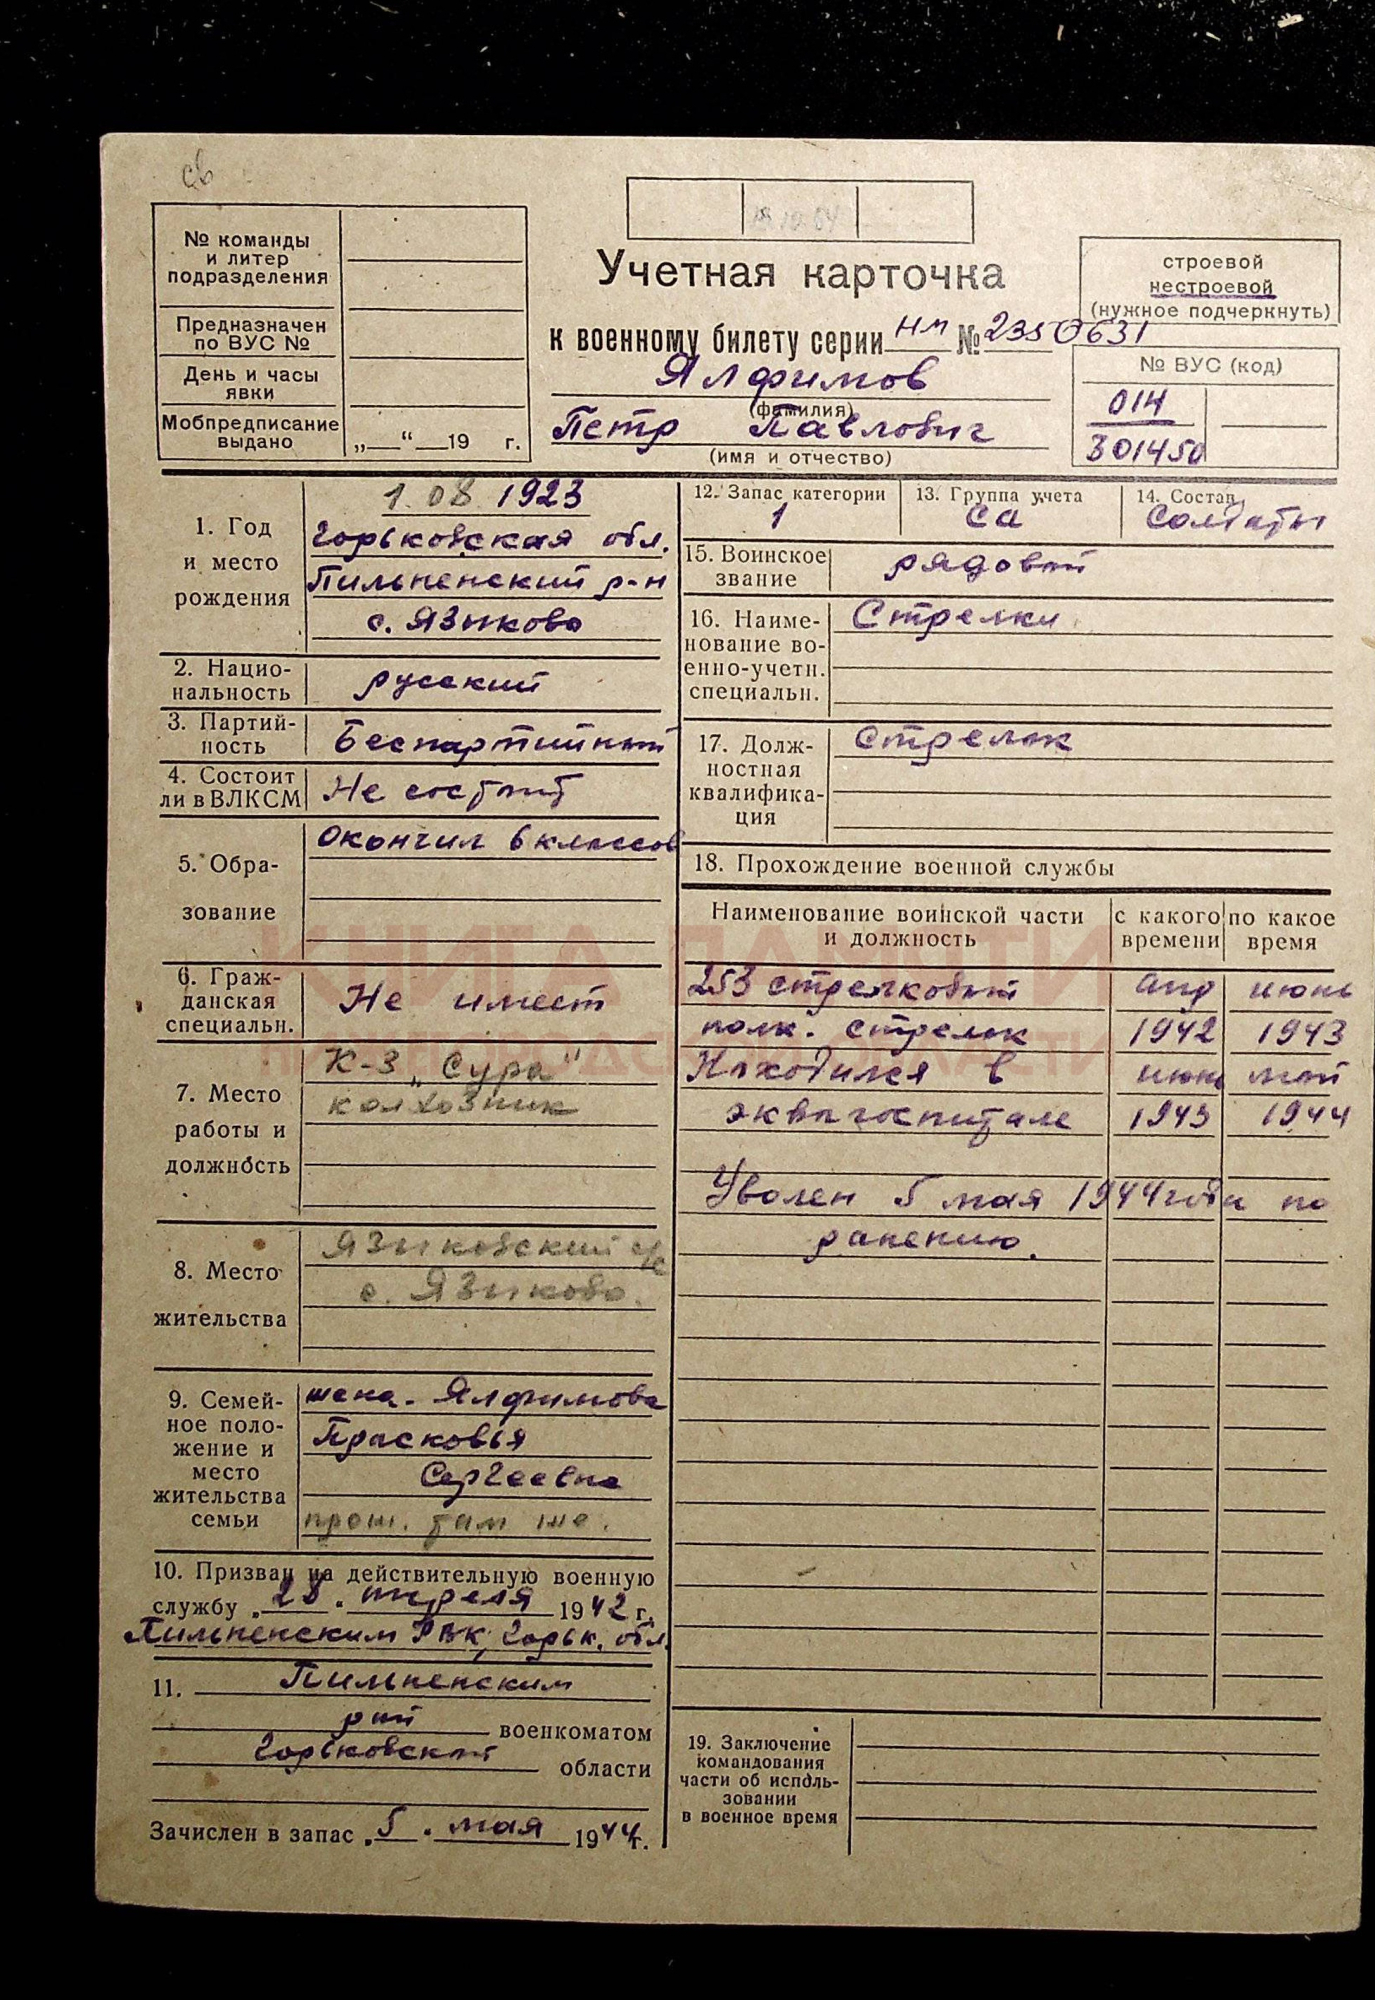 св
№ команды
и литер
подразделения
Предназначен
по ВУС №
День и часы
явки
Мобпредписание
выдано
„ “ 19 г.
Учетная карточка
к военному билету серии НМ № 2350631
Ялфимов
(фамилия)
Петр Павлович
(имя и отчество)
строевой
нестроевой
(нужное подчеркнуть)
№ ВУС (код)
014
301450
1. Год
и место
рождения
1.08 1923
Горьковская обл.
Пильненский р-н
с. Языково
2. Нацио-
нальность
русский
3. Партий-
ность
Беспартийный
4. Состоит
ли в ВЛКСМ
Не состоит
5. Обра-
зование
Окончил 6 классов
6. Граж-
данская
специальн.
Не имеет
7. Место
работы и
должность
К-З „Сура"
колхозник
8. Место
жительства
Языковский с/с
с. Языково.
9. Семей-
ное поло-
жение и
место
жительства
семьи
жена - Ялфимова
Прасковья
Сергеевна
прож. там же.
10. Призван на действительную военную
службу „28 " апреля 1942 г.
Пильненским РВК, Горьк. обл.
11. Пильненским
рай военкоматом
Горьковской области
Зачислен в запас „5 " мая 1944 г.
12. Запас категории
1
13. Группа учета
СА
14. Состав
Солдаты
15. Воинское
звание
рядовой
16. Наиме-
нование во-
енно-учетн.
специальн.
Стрелки
17. Долж-
ностная
квалифика-
ция
Стрелок
18. Прохождение военной службы
Наименование воинской части
и должность
с какого
времени
по какое
время
253 стрелковый апр июнь
полк. стрелок 1942 1943
Находился в июнь май
эквагоспитале 1943 1944
Уволен 5 мая 1944 года по
ранению.
19. Заключение
командования
части об исполь-
зовании
в военное время
КНИГА ПАМЯТИ
НИЖЕГОРОДСКОЙ ОБЛАСТИ